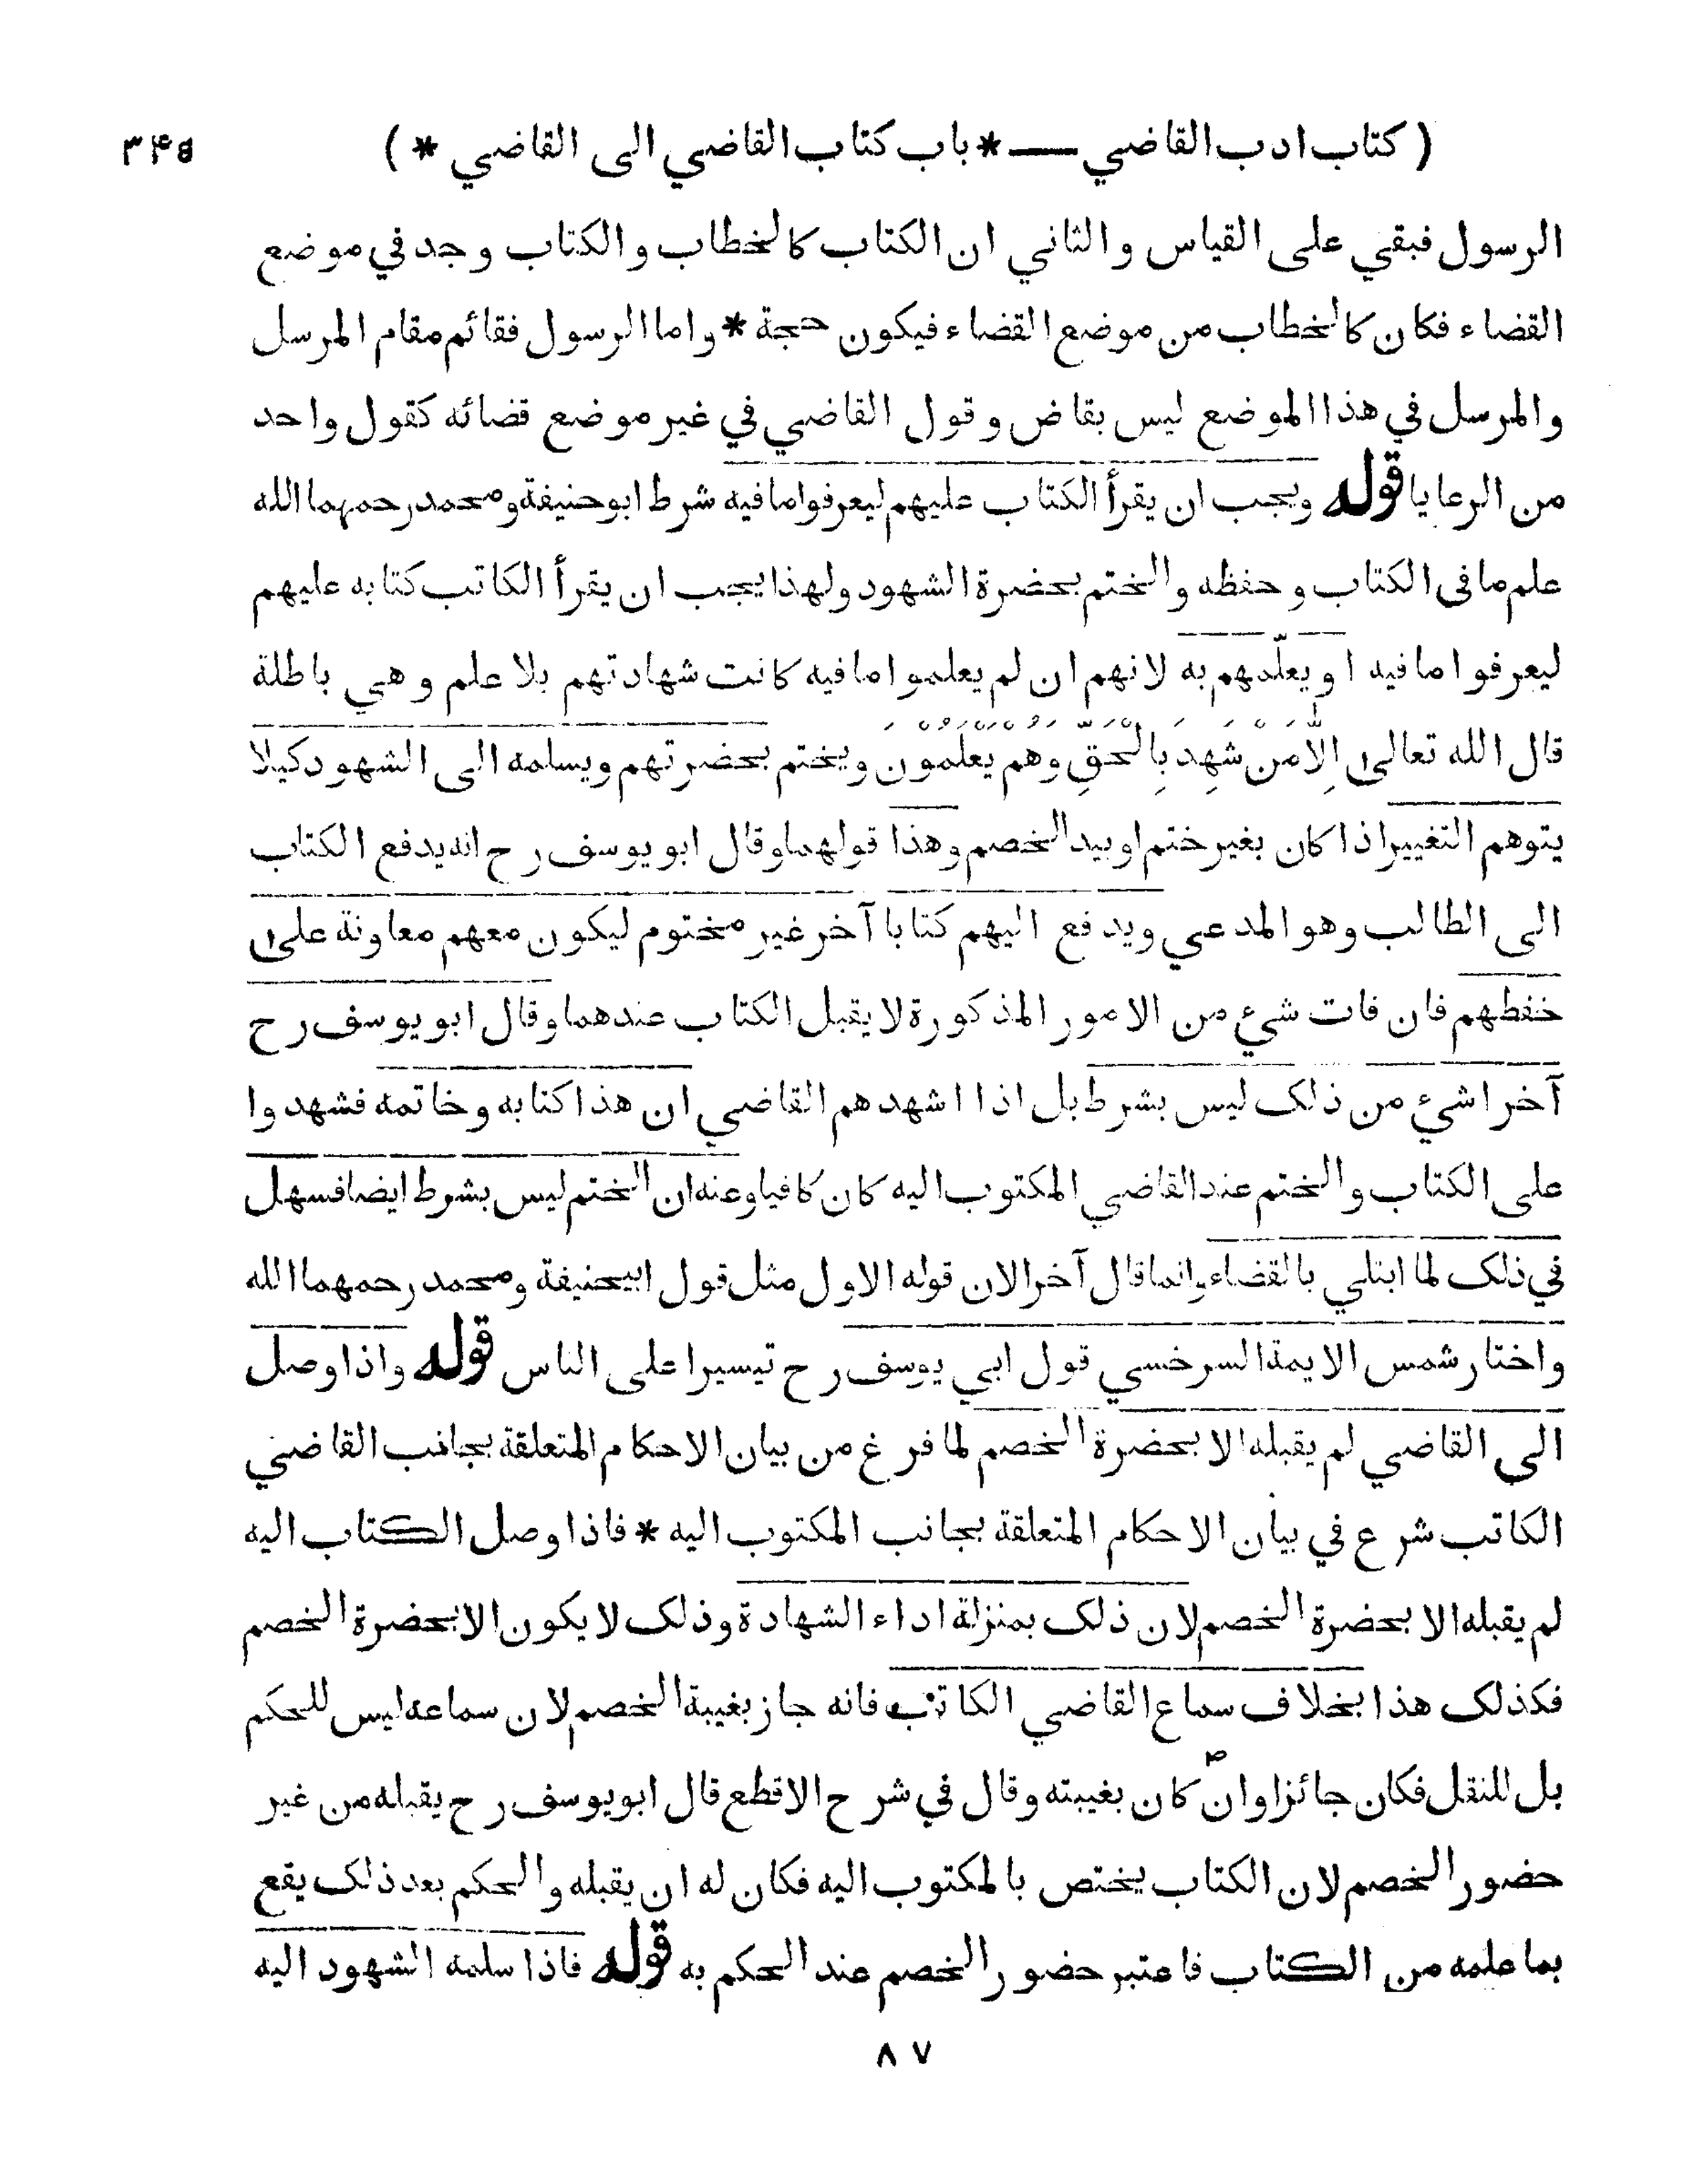 ( كتاب ادب القاضي — * باب كتاب القاضي الى القاضي * ) ٣۴٥
الرسول فبقي على القياس والثاني ان الكتاب كالخطاب والكتاب وجد في موضع
القضاء فكان كالخطاب من موضع القضاء فيكون حجة * واما الرسول فقائم مقام المرسل
والمرسل في هذا الموضع ليس بقاض وقول القاضي في غير موضع قضائه كقول واحد
من الرعايا قوله ويجب ان يقرأ الكتاب عليهم ليعرفوا ما فيه شرط ابو حنيفة ومحمد رحمهما الله
علم ما في الكتاب وحفظه والختم بحضرة الشهود ولهذا يجب ان يقرأ الكاتب كتابه عليهم
ليعرفوا ما فيه او يعلّمهم به لانهم ان لم يعلموا ما فيه كانت شهادتهم بلا علم وهي باطلة
قال الله تعالى اِلَّا مَنْ شَهِدَ بِالْحَقِّ وَهُمْ يَعْلَمُوْنَ ويختم بحضرتهم ويسلمه الى الشهود كيلا
يتوهم التغيير اذا كان بغير ختم او بيد الخصم وهذا قولهما وقال ابو يوسف رح انه يدفع الكتاب
الى الطالب وهو المدعي ويدفع اليهم كتابا آخر غير مختوم ليكون معهم معاونة على
حفظهم فان فات شيء من الامور المذكورة لا يقبل الكتاب عندهما وقال ابو يوسف رح
آخرا شيء من ذلك ليس بشرط بل اذا اشهدهم القاضي ان هذا كتابه وخاتمه فشهدوا
على الكتاب والختم عند القاضي المكتوب اليه كان كافيا وعنه ان الختم ليس بشرط ايضا فسهل
في ذلك لما ابتلي بالقضاء وانما قال آخرا لان قوله الاول مثل قول ابيحنيفة ومحمد رحمهما الله
واختار شمس الايمة السرخسي قول ابي يوسف رح تيسيرا على الناس قوله واذا وصل
الى القاضي لم يقبله الا بحضرة الخصم لما فرغ من بيان الاحكام المتعلقة بجانب القاضي
الكاتب شرع في بيان الاحكام المتعلقة بجانب المكتوب اليه * فاذا وصل الكتاب اليه
لم يقبله الا بحضرة الخصم لان ذلك بمنزلة اداء الشهادة وذلك لا يكون الا بحضرة الخصم
فكذلك هذا بخلاف سماع القاضي الكاتب فانه جاز بغيبة الخصم لان سماعه ليس للحكم
بل للنقل فكان جائزا وان كان بغيبته وقال في شرح الاقطع قال ابو يوسف رح يقبله من غير
حضور الخصم لان الكتاب يختص بالمكتوب اليه فكان له ان يقبله والحكم بعد ذلك يقع
بما علمه من الكتاب فاعتبر حضور الخصم عند الحكم به قوله فاذا سلمه الشهود اليه
٨٧